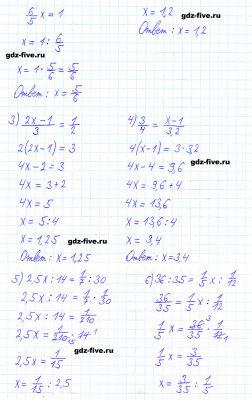 6/5 x = 1
x = 1 : 6/5
gdz-five.ru
x = 1 · 5/6 = 5/6
gdz-five.ru
Ответ: x = 5/6
x = 1,2
Ответ: x = 1,2
3) (2x - 1)/3 = 1/2
2(2x - 1) = 3
4x - 2 = 3
4x = 3 + 2
4x = 5
x = 5 : 4
x = 1,25
gdz-five.ru
Ответ: x = 1,25
4) 3/4 = (x - 1)/3,2
4(x - 1) = 3 · 3,2
4x - 4 = 9,6
gdz-five.ru
4x = 9,6 + 4
4x = 13,6
x = 13,6 : 4
x = 3,4
gdz-five.ru
Ответ: x = 3,4
5) 2,5x : 14 = 1/7 : 30
2,5x : 14 = 1/7 · 1/30
2,5x : 14 = 1/210
2,5x = 1/210 · 14
gdz-five.ru
2,5x = 1/15
x = 1/15 : 2,5
6) 36 : 35 = 1/5 x : 1/12
36/35 = 1/5 x : 1/12
1/5 x = 36/35 · 1/12
1/5 x = 3/35
gdz-five.ru
x = 3/35 : 1/5